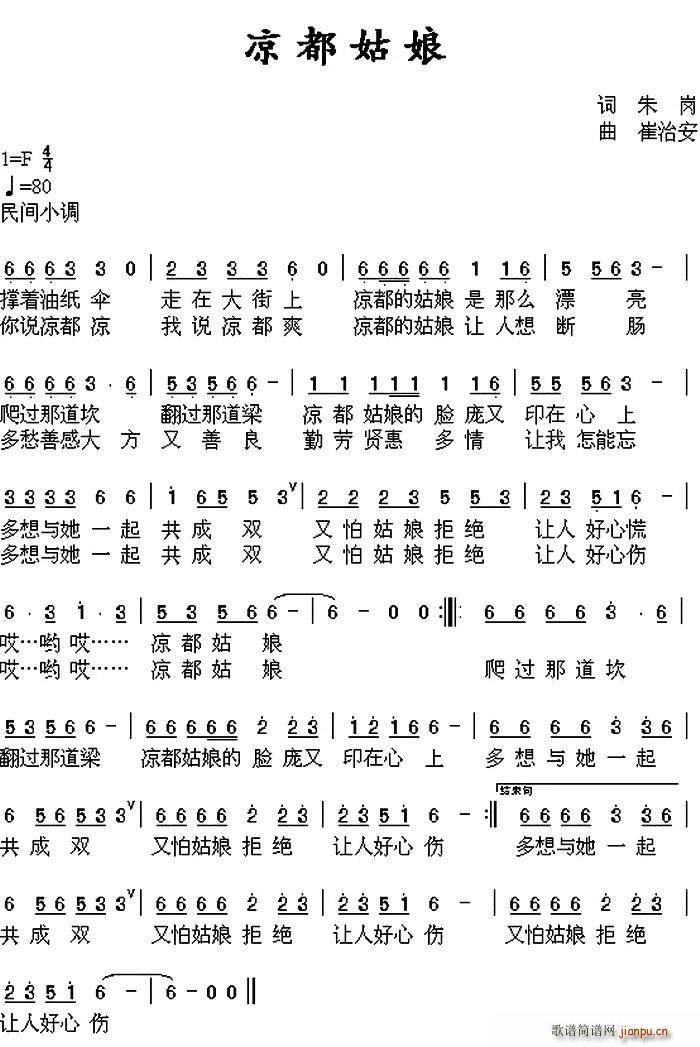 凉都姑娘
词 朱 岗
曲 崔治安
1=F 4/4
♩=80
民间小调
6 6 6 3 3 0 | 2 3 3 3 6 0 | 6 6 6 6 6 1 1 6 | 5 5 6 3 - |
撑着油纸伞 走在大街上 凉都的姑娘是那么漂 亮
你说凉都凉 我说凉都爽 凉都的姑娘让人想断 肠
6 6 6 6 3 · 6 | 5 3 5 6 6 - | 1 1 1 1 1 1 1 6 | 5 5 5 6 3 - |
爬过那道坎 翻过那道梁 凉都姑娘的脸庞又 印在心上
多愁善感大方 又善良 勤劳贤惠 多情 让我怎能忘
3 3 3 3 6 6 | 1 6 5 5 3 V | 2 2 2 3 5 5 3 | 2 3 5 1 6 - |
多想与她一起 共成 双 又怕姑娘拒绝 让人好心慌
多想与她一起 共成 双 又怕姑娘拒绝 让人好心伤
6 · 3 1 · 3 | 5 3 5 6 6 - | 6 - 0 0 :||: 6 6 6 6 3 · 6 |
哎…哟哎…… 凉都姑 娘
哎…哟哎…… 凉都姑 娘 爬过那道坎
5 3 5 6 6 - | 6 6 6 6 6 2 2 3 | 1 2 1 6 6 - | 6 6 6 6 3 3 6 |
翻过那道梁 凉都姑娘的脸庞又 印在心上 多想与她一起
6 5 6 5 3 3 V | 6 6 6 6 2 2 3 | 2 3 5 1 6 - :|| 结束句 6 6 6 6 3 3 6 |
共成双 又怕姑娘拒绝 让人好心伤 多想与她一起
6 5 6 5 3 3 V | 6 6 6 6 2 2 3 | 2 3 5 1 6 - | 6 6 6 6 2 2 3 |
共成双 又怕姑娘拒绝 让人好心伤 又怕姑娘拒绝
2 3 5 1 6 - | 6 - 0 0 ||
让人好心伤
歌谱简谱网 jianpu.cn